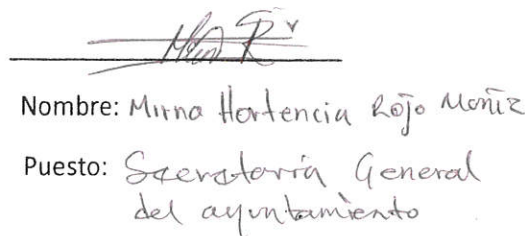 Nombre: Mirna Hortencia Rojo Moñiz
Puesto: Secretaría General
del ayuntamiento